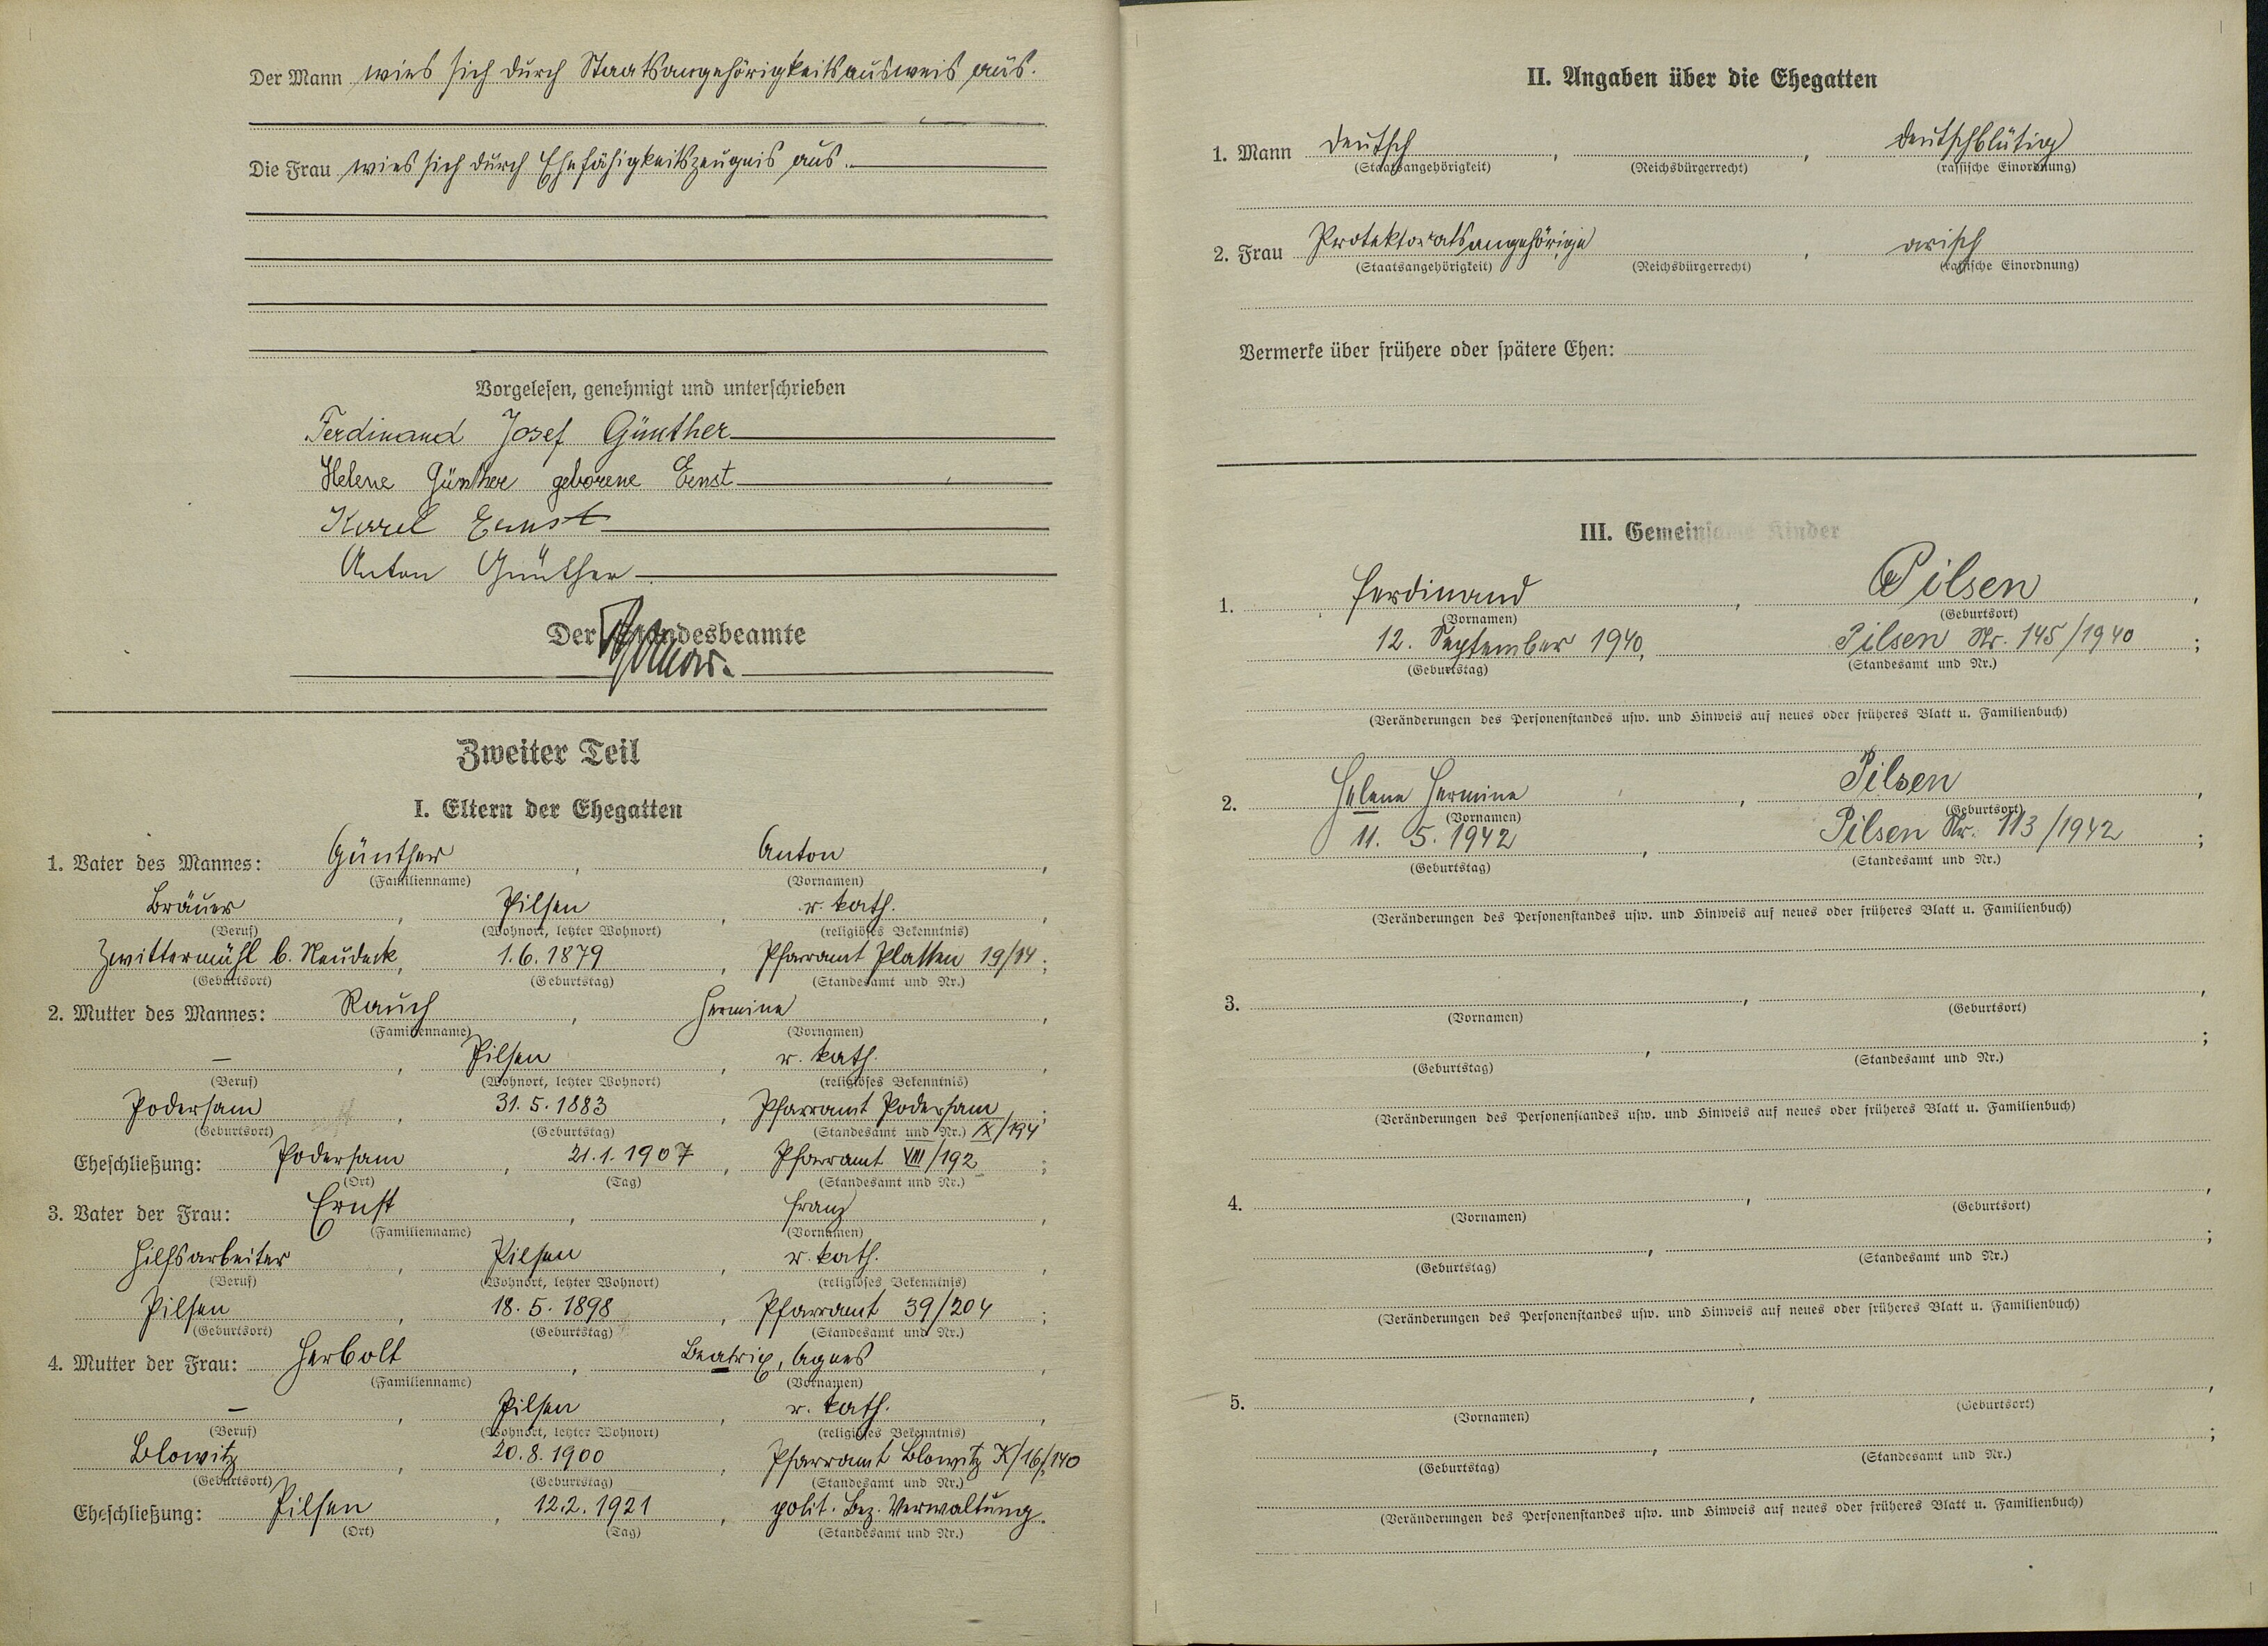 Der Mann wies sich durch Staatsangehörigkeitsausweis aus.
Die Frau wies sich durch Ehefähigkeitszeugnis aus.
Vorgelesen, genehmigt und unterschrieben
Ferdinand Josef Günther
Helene Günther geborene Ernst
Karel Ernst
Anton Günther
Der Standesbeamte
Zweiter Teil
I. Eltern der Ehegatten
1. Vater des Mannes: Günther, Anton,
(Familienname) (Vornamen)
Bräuer, Pilsen, r. kath.,
(Beruf) (Wohnort, letzter Wohnort) (religiöses Bekenntnis)
Zwittermühl b. Neudeck, 1.6.1879, Pfarramt Platten 19/14;
(Geburtsort) (Geburtstag) (Standesamt und Nr.)
2. Mutter des Mannes: Rauch, Hermine,
(Familienname) (Vornamen)
—, Pilsen, r. kath.,
(Beruf) (Wohnort, letzter Wohnort) (religiöses Bekenntnis)
Podersam, 31.5.1883, Pfarramt Podersam;
(Geburtsort) (Geburtstag) (Standesamt und Nr.) IX/194
Eheschließung: Podersam, 21.1.1907, Pfarramt VIII/192;
(Ort) (Tag) (Standesamt und Nr.)
3. Vater der Frau: Ernst, Franz,
(Familienname) (Vornamen)
Hilfsarbeiter, Pilsen, r. kath.,
(Beruf) (Wohnort, letzter Wohnort) (religiöses Bekenntnis)
Pilsen, 18.5.1898, Pfarramt 39/204;
(Geburtsort) (Geburtstag) (Standesamt und Nr.)
4. Mutter der Frau: Herbolt, Beatrix, Agnes,
(Familienname) (Vornamen)
—, Pilsen, r. kath.,
(Beruf) (Wohnort, letzter Wohnort) (religiöses Bekenntnis)
Blowitz, 20.8.1900, Pfarramt Blowitz X/16/140
(Geburtsort) (Geburtstag) (Standesamt und Nr.)
Eheschließung: Pilsen, 12.2.1921, polit. Bez. Verwaltung.
(Ort) (Tag) (Standesamt und Nr.)
II. Angaben über die Ehegatten
1. Mann deutsch, , deutschblütig
(Staatsangehörigkeit) (Reichsbürgerrecht) (rassische Einordnung)
2. Frau Protektoratsangehörige, arisch
(Staatsangehörigkeit) (Reichsbürgerrecht) (rassische Einordnung)
Vermerke über frühere oder spätere Ehen:
III. Gemeinsame Kinder
1. Ferdinand, Pilsen,
(Vornamen) (Geburtsort)
12. September 1940, Pilsen Nr. 145/1940;
(Geburtstag) (Standesamt und Nr.)
(Veränderungen des Personenstandes usw. und Hinweis auf neues oder früheres Blatt u. Familienbuch)
2. Helene Hermine, Pilsen,
(Vornamen) (Geburtsort)
11. 5. 1942, Pilsen Nr. 113/1942;
(Geburtstag) (Standesamt und Nr.)
(Veränderungen des Personenstandes usw. und Hinweis auf neues oder früheres Blatt u. Familienbuch)
3. , ,
(Vornamen) (Geburtsort)
, ;
(Geburtstag) (Standesamt und Nr.)
(Veränderungen des Personenstandes usw. und Hinweis auf neues oder früheres Blatt u. Familienbuch)
4. , ,
(Vornamen) (Geburtsort)
, ;
(Geburtstag) (Standesamt und Nr.)
(Veränderungen des Personenstandes usw. und Hinweis auf neues oder früheres Blatt u. Familienbuch)
5. , ,
(Vornamen) (Geburtsort)
, ;
(Geburtstag) (Standesamt und Nr.)
(Veränderungen des Personenstandes usw. und Hinweis auf neues oder früheres Blatt u. Familienbuch)